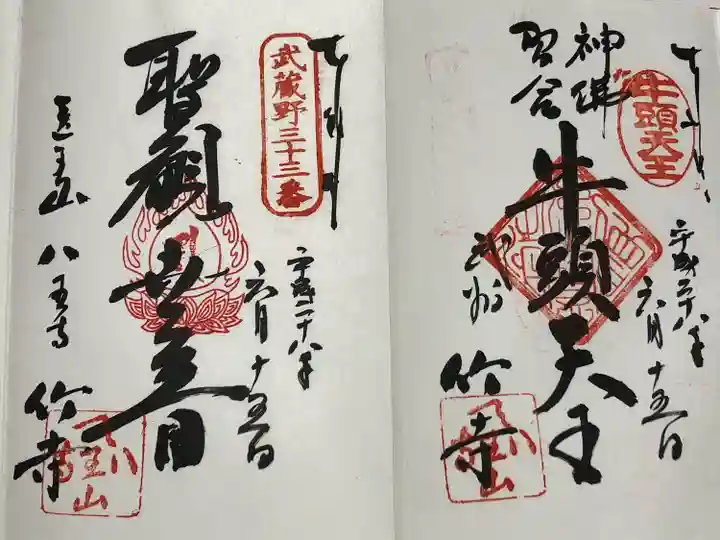 牛頭天王
奉拝
平成二十八年
六月十五日
神佛
習合
牛頭天王
武州
竹寺
奉拝
武蔵野三十三番
平成二十八年
六月十五日
聖観世音
医王山
八王寺
竹寺